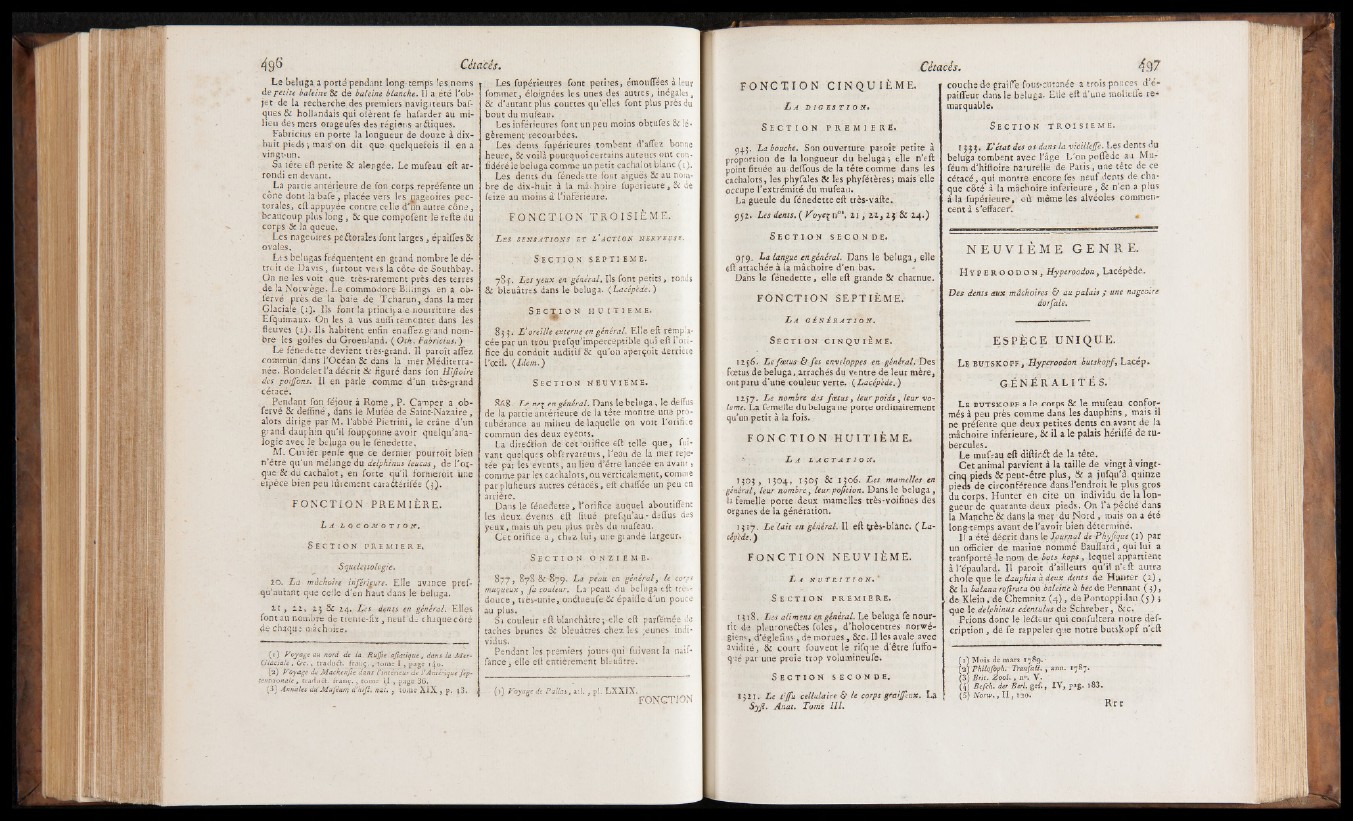 496
Cétacés.
Le beluga a porté pendant long-temps les noms
de petite baleine & de baleine blanche. Il a été l'ob-
jet de la recherche des premiers navigateurs bas-
ques & hollandais qui osèrent se hasarder au mi-
lieu des mers orageuses des régions arctiques.
Fabricius en porte la longueur de douze à dix-
huit pieds ; mais on dit que quelquefois il en a
vingt-un.
Sa tête est petite & alongée. Le museau est ar-
rondi en devant.
La partie antérieure de son corps représente un
cône dont la base, placée vers les nageoires pec-
torales, est appuyée contre celle d'un autre cône,
beaucoup plus long, & que composent le reste du
corps & la queue.
Les nageoires pectorales sont larges, épaisses &
ovales.
Les belugas fréquentent en grand nombre le dé-
troit de Davis, surtout vers la côte de Southbay.
On ne les voit que très-rarement près des terres
de la Norwège. Le commodore Billings en a ob-
servé près de la baie de Tcharun, dans la mer
Glaciale (1). Ils font la principale nourriture des
Esquimaux. On les a vus aussi remonter dans les
fleuves (2). Ils habitent enfin en assez grand nom-
bre les golfes du Groenland. (Oth. Fabricius.)
Le fénedette devient très-grand. Il paroît assez
commun dans l'Océan & dans la mer Méditerra-
née. Rondelet l'a décrit & figuré dans son Histoire
des poissons. Il en parle comme d'un très-grand
cétacé.
Pendant son séjour à Rome, P. Camper a ob-
servé & dessiné, dans le Musée de Saint-Nazaire,
alors dirigé par M. l'abbé Pietrini, le crâne d'un
grand dauphin qu'il soupçonne avoir quelqu'ana-
logie avec le beluga ou le fénedette.
M. Cuvier pense que ce dernier pourroit bien
n'être qu'un mélange du delphinus leucas, de l'or-
que & du cachalot, en sorte qu'il formeroit une
espèce bien peu sûrement caractérisée (3).
FONCTION PREMIÈRE.
LA LOCOMOTION.
SECTION PREMIERE.
Squeletologie.
20. La mâchoire inférieure. Elle avance pres-
qu'autant que celle d'en haut dans le beluga.
21, 22, 23 & 24. Les dents en général. Elles
sont au nombre de trente-six, neuf de chaque côté
de chaque mâchoire.
(1) Voyage au nord de la Russie asiatique, dans la Mer-
Glaciale, &c., traduct. franç., tome I, page 140.
(2) Voyage de Mackensie dans l'intérieur de l'Amérique sep-
tentrionale, traduct. franç., tome II, page 36.
(3) Annales du Muséum d'hist. nat., tome XIX, p. 13.
Les supérieures sont petites, émoussées à leur
sommet, éloignées les unes des autres, inégales,
& d'autant plus courtes qu'elles sont plus près du
bout du museau.
Les inférieures sont un peu moins obtuses & lé-
gèrement recourbées.
Les dents supérieures tombent d'assez bonne
heure, & voilà pourquoi certains auteurs ont con-
sidéré le beluga comme un petit cachalot blanc (1).
Les dents du fénedette sont aiguës & au nom-
bre de dix-huit à la mâchoire supérieure, & de
seize au moins à l'inférieure.
FONCTION TROISIÈME.
LES SENSATIONS ET L'ACTION NERVEUSE.
SECTION SEPTIEME.
785. Les yeux en général. Ils sont petits, ronds
& bleuâtres dans le beluga. (Lacépède.)
SECTION HUITIEME.
833. L'oreille externe en général. Elle est rempla-
cée par un trou presqu'imperceptible qui est l'ori-
fice du conduit auditif & qu'on aperçoit derrière
l'œil. (Idem.)
SECTION NEUVIEME.
848. Le nez en général. Dans le beluga, le dessus
de la partie antérieure de la tête montre une pro-
tubérance au milieu de laquelle on voit l'orifice
commun des deux évents.
La direction de cet orifice est telle que, sui-
vant quelques observateurs, l'eau de la mer reje-
tée par les évents, au lieu d'être lancée en avant,
comme par les cachalots, ou verticalement, comme
par plusieurs autres cétacés, est chassée un peu en
arrière.
Dans le fénedette, l'orifice auquel aboutissent
les deux évents est situé presqu'au-dessus des
yeux, mais un peu plus près du museau.
Cet orifice a, chez lui, une grande largeur.
SECTION ONZIEME.
877, 878 & 879. La peau en général, le corps
muqueux, sa couleur. La peau du beluga est très-
douce, très-unie, onctueuse & épaisse d'un pouce
au plus.
Sa couleur est blanchâtre ; elle est parsemée de
taches brunes & bleuâtres chez les jeunes indi-
vidus.
Pendant les premiers jours qui suivent la nais-
sance, elle est entièrement bleuâtre.
(1) Voyage de Pallas, atl., pl. LXXIX.
FONCTION
Cétacés.
497
FONCTION CINQUIÈME.
LA DIGESTION.
SECTION PREMIERE.
943. La bouche. Son ouverture paroît petite à
proportion de la longueur du beluga ; elle n'est
point située au-dessous de la tête comme dans les
cachalots, les physales & les physétères ; mais elle
occupe l'extrémité du museau.
La gueule du fénedette est très-vaste.
952. Les dents. (Voyez nos. 21, 22, 23 & 24.)
SECTION SECONDE.
959. La langue en général. Dans le beluga, elle
est attachée à la mâchoire d'en bas.
Dans le fénedette, elle est grande & charnue.
FONCTION SEPTIÈME.
LA GÉNÉRATION.
SECTION CINQUIÈME.
1256. Le fœtus & ses enveloppes en général. Des
fœtus de beluga, arrachés du ventre de leur mère,
ont paru d'une couleur verte. (Lacépède.)
1257. Le nombre des fœtus, leur poids, leur vo-
lume. La femelle du beluga ne porte ordinairement
qu'un petit à la fois.
FONCTION HUITIÈME.
LA LACTATION.
1303, 1304, 1305 & 1306. Les mamelles en
général, leur nombre, leur position. Dans le beluga,
la femelle porte deux mamelles très-voisines des
organes de la génération.
1317. Le lait en général. Il est très-blanc. (La-
cépède.)
FONCTION NEUVIÈME.
LA NUTRITION.
SECTION PREMIERE.
1318. Les alimens en général. Le beluga se nour-
rit de pleuronectes soles, d'holocentres norwé-
giens, d'églefins, de morues, &c. Il les avale avec
avidité, & court souvent le risque d'être suffo-
qué par une proie trop volumineuse.
SECTION SECONDE.
1321. Le tissu cellulaire & le corps graisseux. La
Syst. Anat. Tome III.
couche de graisse sous-cutanée a trois pouces d'é-
paisseur dans le beluga. Elle est d'une mollesse re-
marquable.
SECTION TROISIEME.
1333. L'état des os dans la vieillesse. Les dents du
beluga tombent avec l'âge. L'on possède au Mu-
séum d'histoire naturelle de Paris, une tête de ce
cétacé, qui montre encore ses neuf dents de cha-
que côté à la mâchoire inférieure, & n'en a plus
à la supérieure, où même les alvéoles commen-
cent à s'effacer.
NEUVIÈME GENRE.
HYPEROODON, Hyperoodon, Lacépède.
Des dents aux mâchoires & au palais ; une nageoire
dorsale.
ESPÈCE UNIQUE.
LE BUTSKOPF, Hyperoodon butskopf, Lacép.
GÉNÉRALITÉS.
LE BUTSKOPF a le corps & le museau confor-
més à peu près comme dans les dauphins, mais il
ne présente que deux petites dents en avant de la
mâchoire inférieure, & il a le palais hérissé de tu-
bercules.
Le museau est distinct de la tête.
Cet animal parvient à la taille de vingt à vingt-
cinq pieds & peut-être plus, & a jusqu'à quinze
pieds de circonférence dans l'endroit le plus gros
du corps. Hunter en cite un individu de la lon-
gueur de quarante-deux pieds. On l'a pêché dans
la Manche & dans la mer du Nord, mais on a été
long-temps avant de l'avoir bien déterminé.
Il a été décrit dans le Journal de Physique (1) par
un officier de marine nommé Baussard, qui lui a
transporté le nom de buts kops, lequel appartient
à l'épaulard. Il paroît d'ailleurs qu'il n'est autre
chose que le dauphin à deux dents de Hunter (2),
& la balena rostrata ou baleine à bec de Pennant (3),
de Klein, de Chemnitz (4), de Pontoppidan (5) ;
que le delphinus edentulus de Schreber, &c.
Prions donc le lecteur qui consultera notre des-
cription, de se rappeler que notre butskopf n'est
(1) Mois de mars 1789.
(2) Philosoph. Transact., ann. 1787.
(3) Brit. Zool., no. V.
(4) Besch. der Berl. ges., IV, pag. 183.
(5) Norw., II, 120.
Rrr